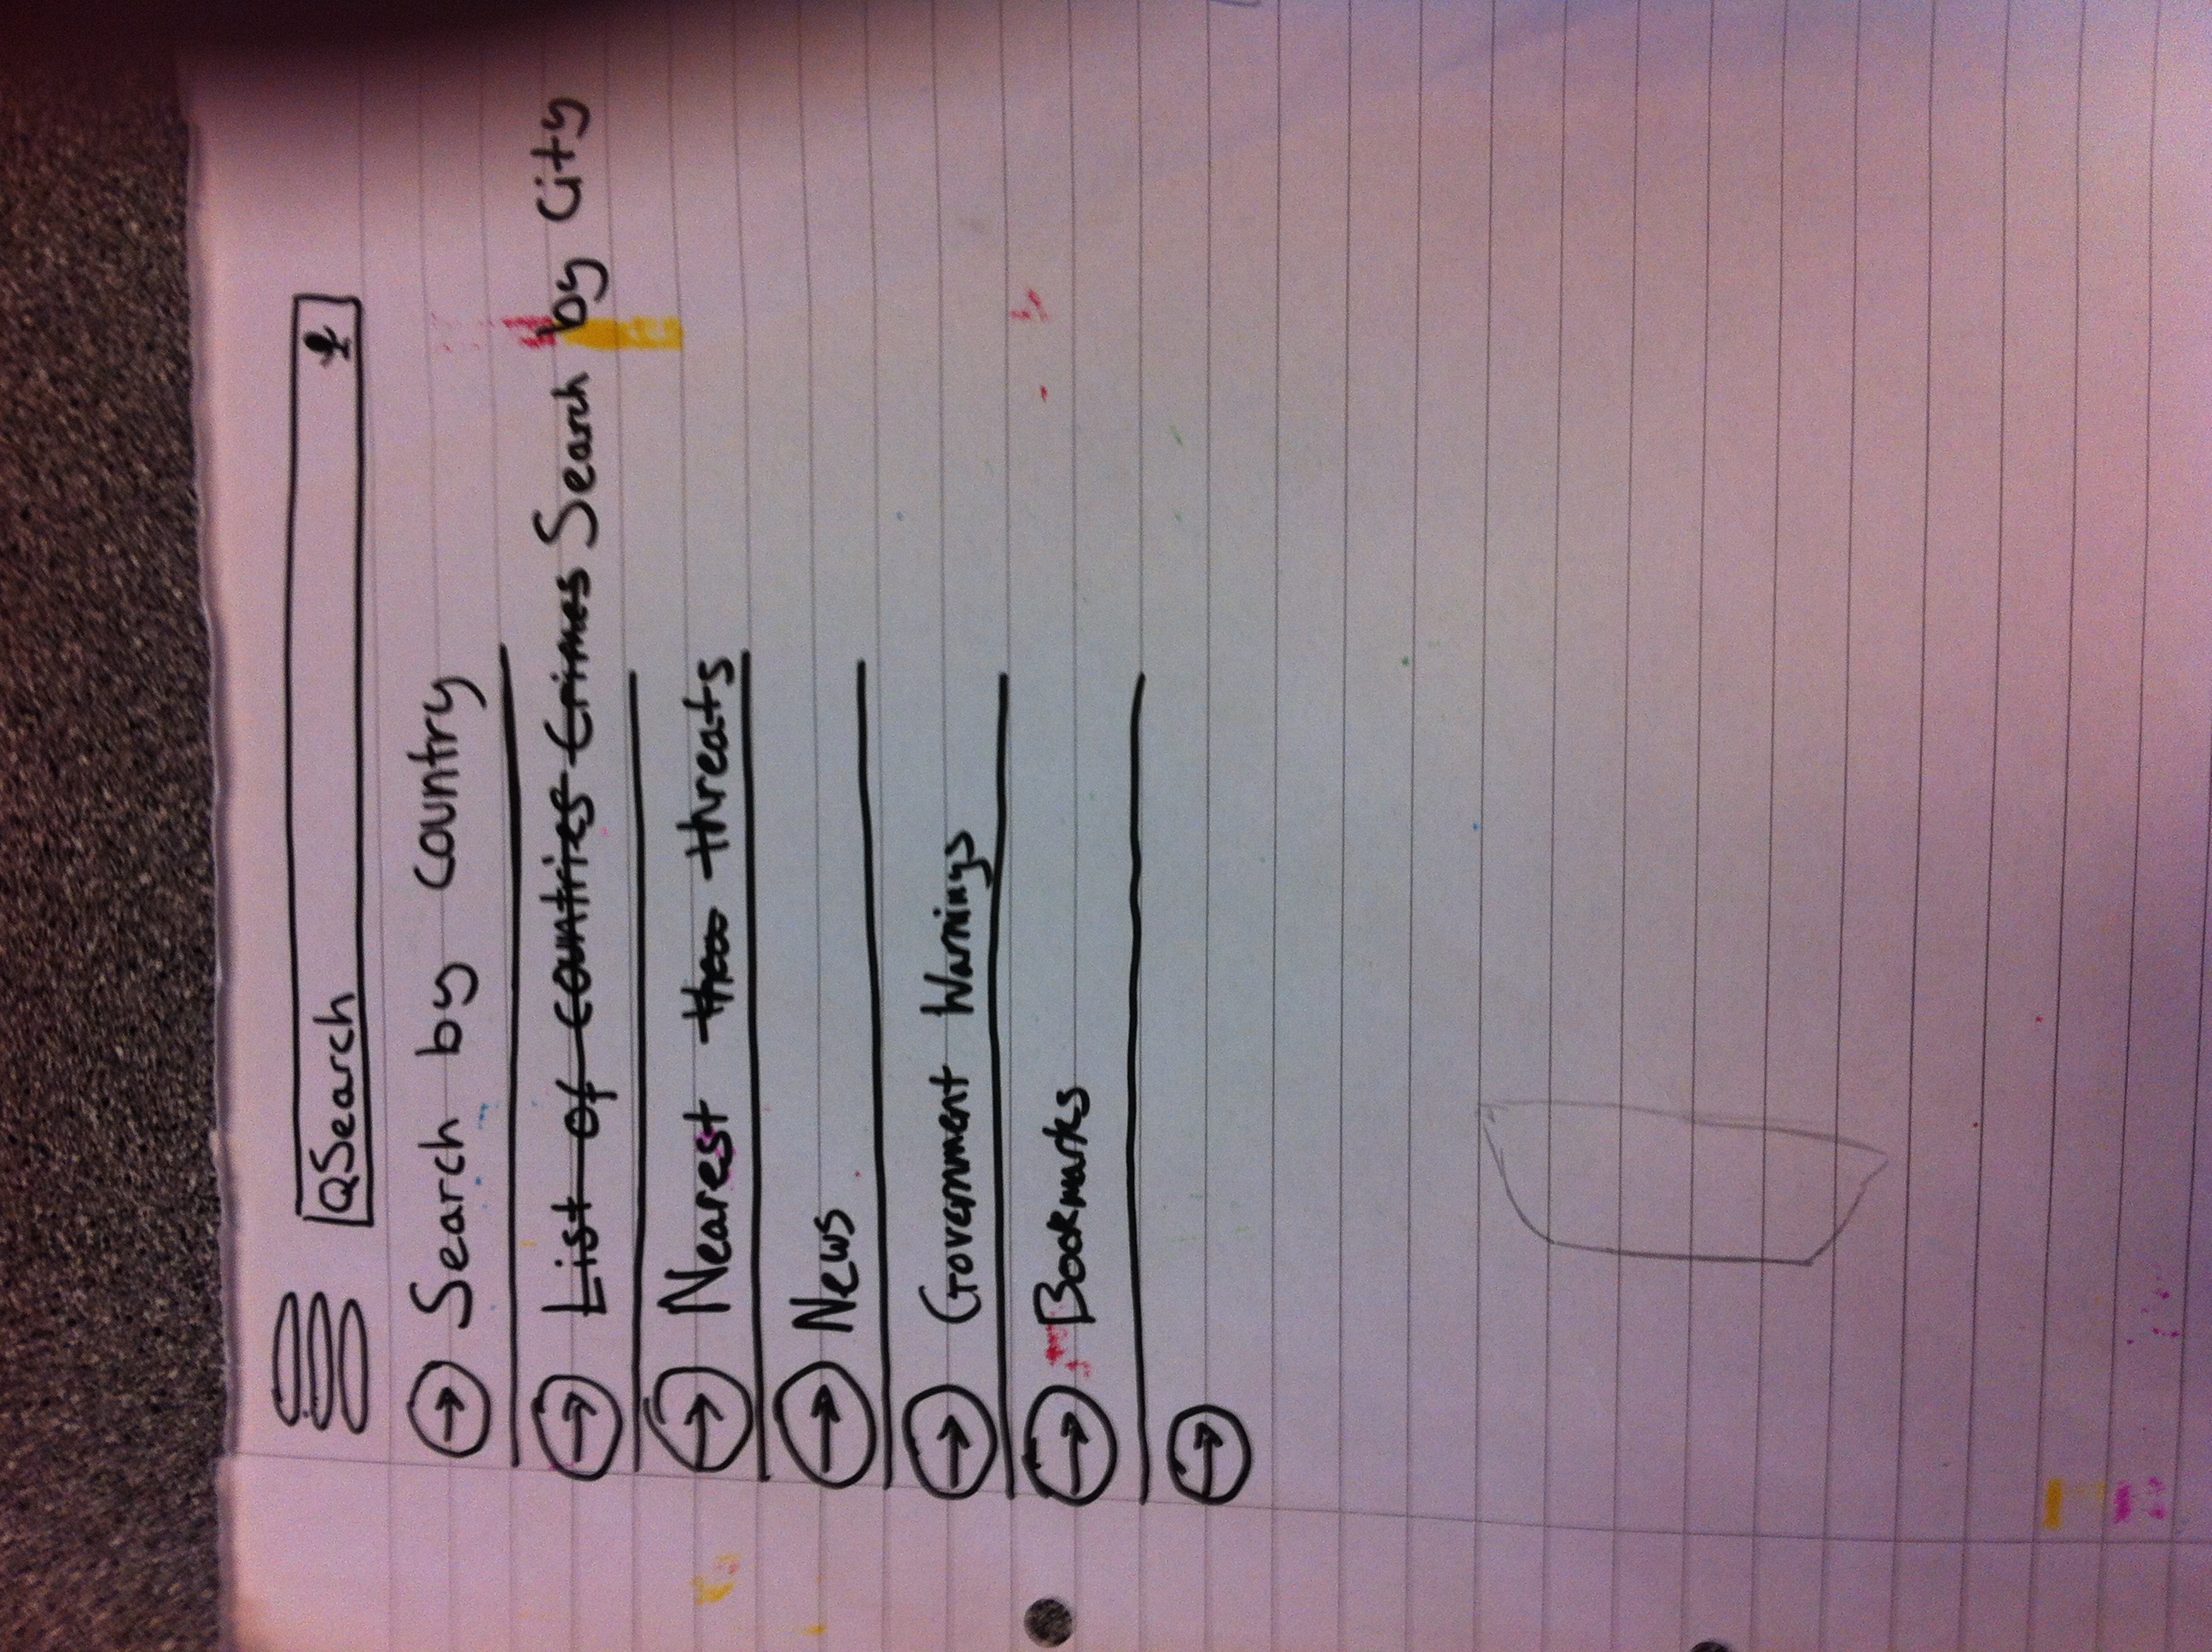 QSearch
Search by Country
List of countries Crimes Search by City
Nearest threa threats
News
Government Warnings
Bookmarks